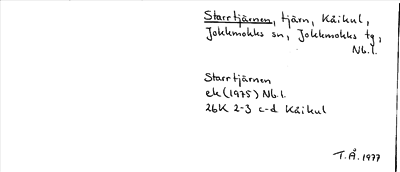 Starrtjärnen, tjärn, Kåikul,
Jokkmokks sn, Jokkmokks tg,
Nb.l.
Starrtjärnen
ek (1975) Nb.l.
26K 2-3 c-d Kåikul
T.Å. 1977